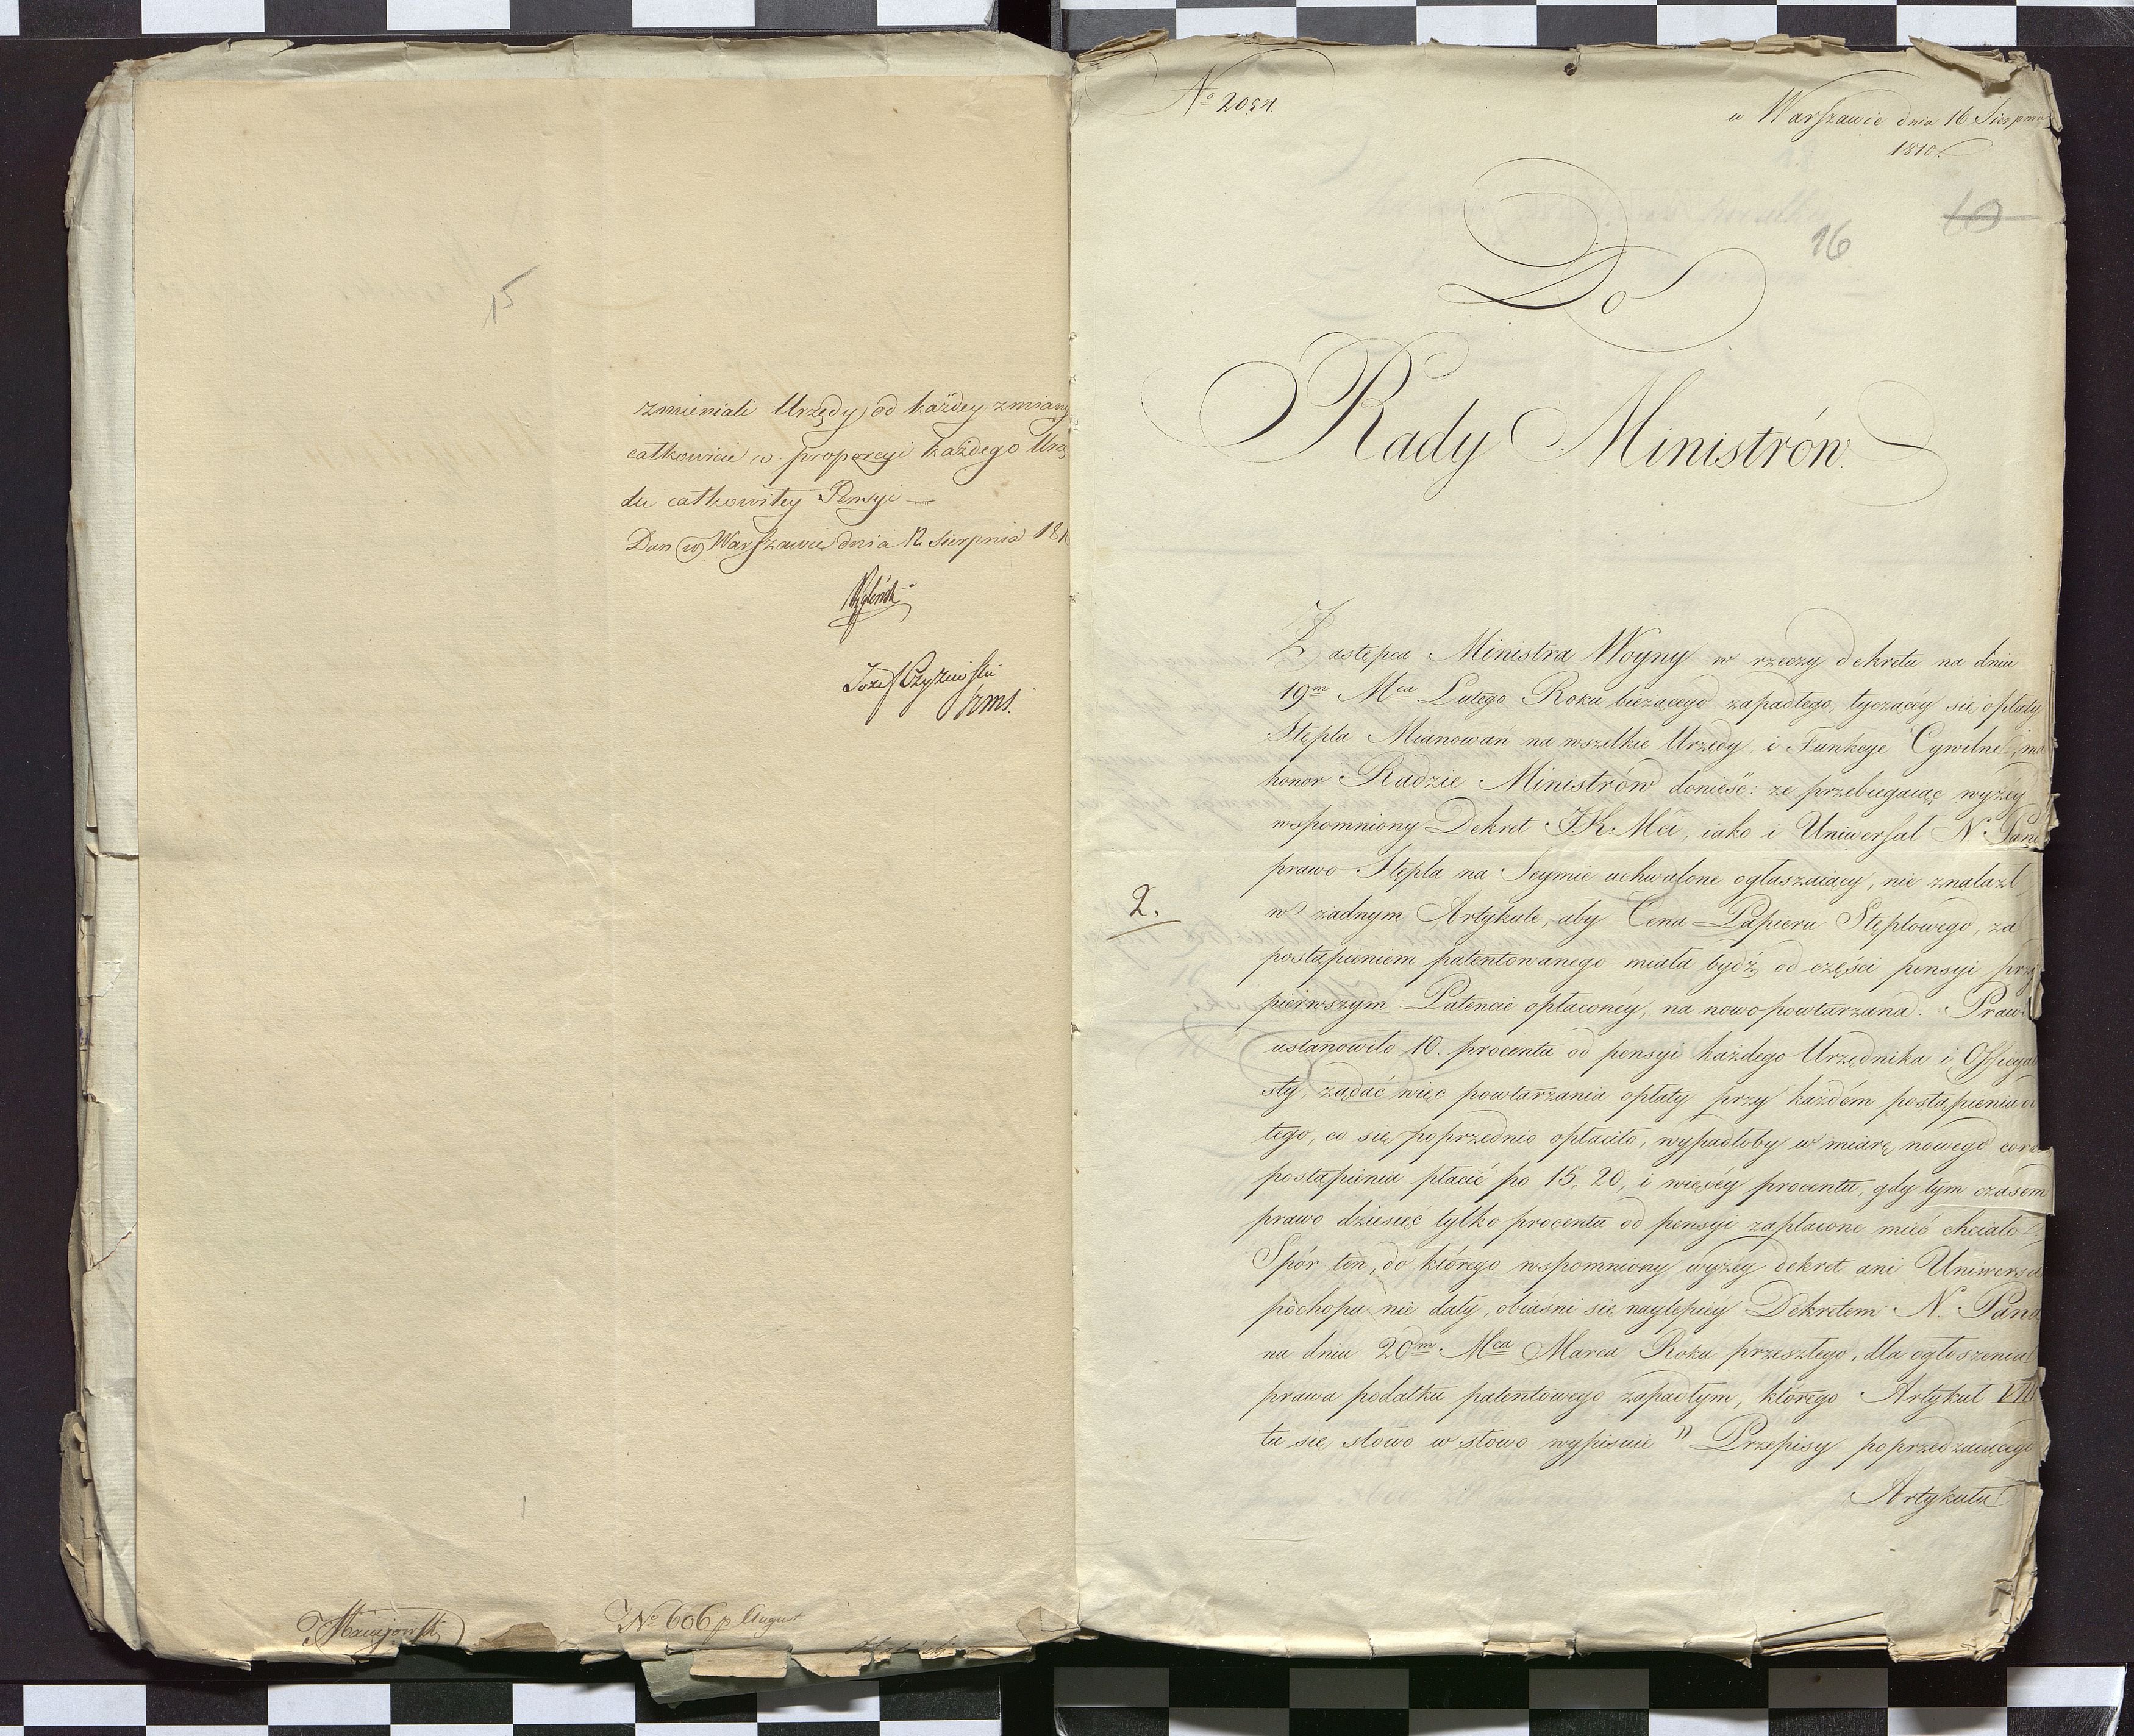 15
zmieniali Urzędy, od każdey zmiany
całkowicie w proporcyi każdego Urzę
du całkowitey Pensyi —
Dan w Warszawie dnia 12 Sierpnia 181
Józef Czyżewski
No 606 p August
No 2054.
w Warszawie dnia 16 Sierpnia
1810.
10
16
Do
Rady Ministrów
Zastępca Ministra Woyny w rzeczy dekretu na dniu
19m Mca Lutego Roku bieżącego zapadłego, tyczącéy się opłaty
Stępla Mianowań na wszelkie Urzędy, i Funkcye Cywilne, ma
honor Radzie Ministrów donieść: że przebiegaiąc wyżéy
wspomniony Dekret JKMci, iako i Uniwersał N. Pana
prawo Stępla na Seymie uchwalone ogłaszaiący, nie znalazł
2.
w żadnym Artykule, aby Cena Papieru Stęplowego, za
postąpieniem patentowanego miała bydź od części pensyi przy
pierwszym Patencie opłaconéy, na nowo powtarzana. Prawo
ustanowiło 10. procentu od pensyi każdego Urzędnika i Officyal
sty, żądać więc powtarzania opłaty przy każdém postąpieniu od
tego, co się poprzednio opłaciło, wypadłoby w miarę nowego coraz
postąpienia płacić po 15, 20, i więcéy procentu, gdy tym czasem
prawo dziesięć tylko procentu od pensyi zapłacone mieć chciało.
Spór ten, do którego wspomniony wyżéy dekret ani Uniwersał
pochopu nie dały, obiaśni się naylepiéy Dekretem N. Pana
na dniu 20m Mca Marca Roku przeszłego, dla ogłoszenia
prawa podatku patentowego zapadłym, którego Artykuł VIII
tu się słowo w słowo wypisuie " Przepisy poprzedzaiącego
Artykułu